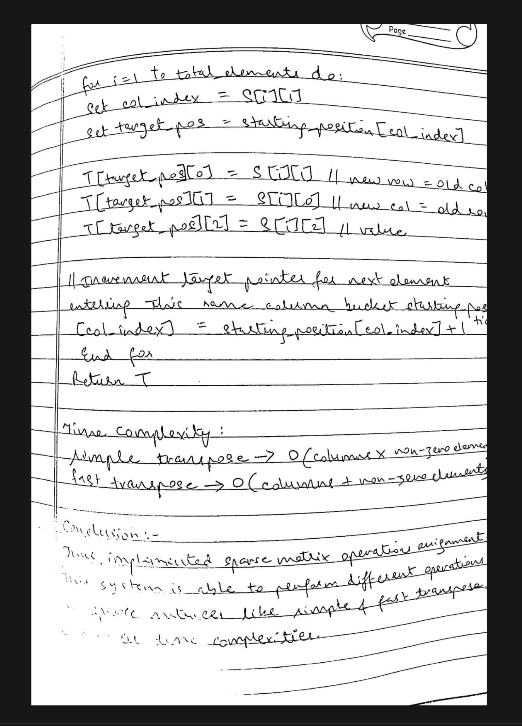 Page
for i=1 to total_elements do:
set col_index = S[i][1]
set target_pos = starting_position[col_index]
T[target_pos][0] = S[i][1] // new row = old col
T[target_pos][1] = S[i][0] // new col = old ro
T[target_pos][2] = S[i][2] // value
// Increment target pointer for next element
entering this same column bucket starting_pos
[col_index] = starting_position[col_index]+1
End for
Return T
Time complexity:
simple transpose → O(columns x non-zero elemen
fast transpose → O(columns + non-zero elements
Conclusion:-
Thus, implemented sparse matrix operations assignment
This system is able to perform different operations
sparse matrices like simple & fast transpose
time complexities.